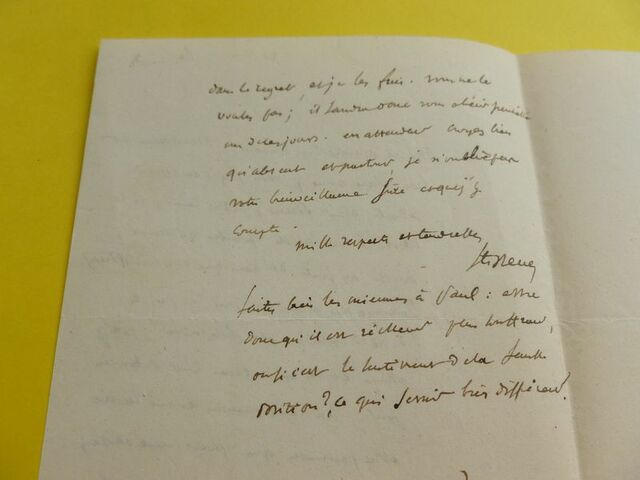 dans le regret, et je les fuis. vous ne le
voulez pas; il faudra donc vous obéir
un de ces jours. en attendant croyez bien
qu'absent et partout, je n'oublie pas
votre bienveillance et que j'y
compte.
mille respects et tendresses
Ste Beuve
faites bien les miennes à Paul: est-ce
donc qu'il est réellement plus souffrant,
ou si c'est le sentiment de la
position?, ce qui serait bien différent.